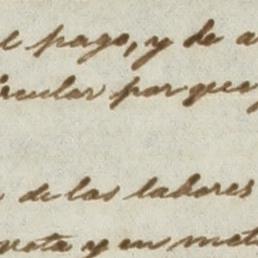 el pago, y de a
ircular por que
de las labores
nota y en met